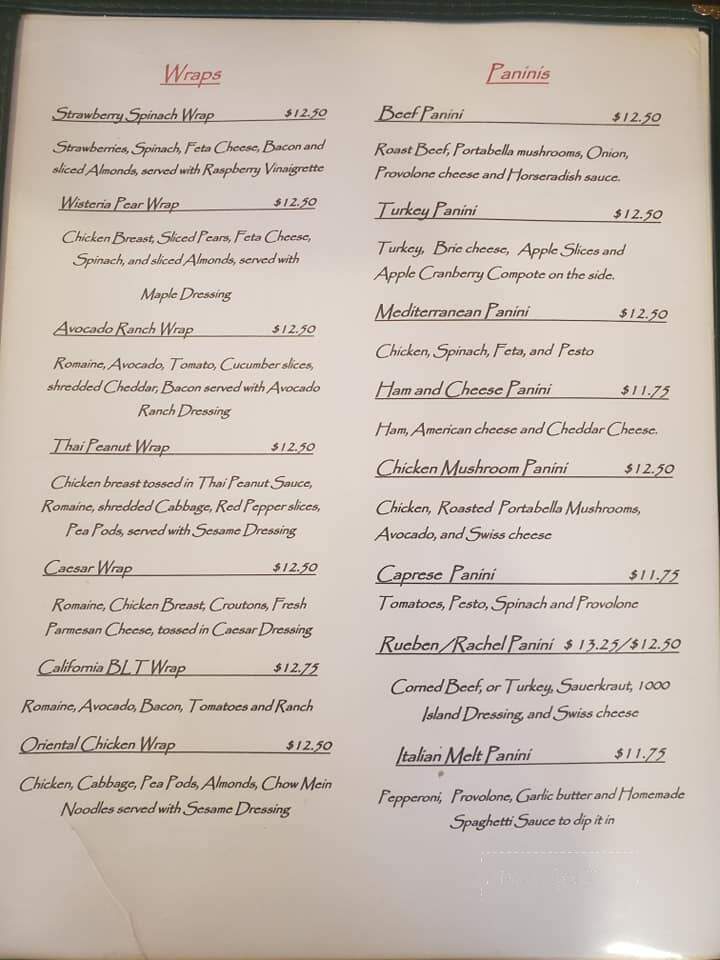 Wraps
Strawberry Spinach Wrap $12.50
Strawberries, Spinach, Feta Cheese, Bacon and
sliced Almonds, served with Raspberry Vinaigrette
Wisteria Pear Wrap $12.50
Chicken Breast, Sliced Pears, Feta Cheese,
Spinach, and sliced Almonds, served with
Maple Dressing
Avocado Ranch Wrap $12.50
Romaine, Avocado, Tomato, Cucumber slices,
shredded Cheddar, Bacon served with Avocado
Ranch Dressing
Thai Peanut Wrap $12.50
Chicken breast tossed in Thai Peanut Sauce,
Romaine, shredded Cabbage, Red Pepper slices,
Pea Pods, served with Sesame Dressing
Caesar Wrap $12.50
Romaine, Chicken Breast, Croutons, Fresh
Parmesan Cheese, tossed in Caesar Dressing
California BLT Wrap $12.75
Romaine, Avocado, Bacon, Tomatoes and Ranch
Oriental Chicken Wrap $12.50
Chicken, Cabbage, Pea Pods, Almonds, Chow Mein
Noodles served with Sesame Dressing
Paninis
Beef Panini $12.50
Roast Beef, Portabella mushrooms, Onion,
Provolone cheese and Horseradish sauce.
Turkey Panini $12.50
Turkey, Brie cheese, Apple Slices and
Apple Cranberry Compote on the side.
Mediterranean Panini $12.50
Chicken, Spinach, Feta, and Pesto
Ham and Cheese Panini $11.75
Ham, American cheese and Cheddar Cheese.
Chicken Mushroom Panini $12.50
Chicken, Roasted Portabella Mushrooms,
Avocado, and Swiss cheese
Caprese Panini $11.75
Tomatoes, Pesto, Spinach and Provolone
Rueben/Rachel Panini $ 13.25/$12.50
Corned Beef, or Turkey, Sauerkraut, 1000
Island Dressing, and Swiss cheese
Italian Melt Panini $11.75
Pepperoni, Provolone, Garlic butter and Homemade
Spaghetti Sauce to dip it in